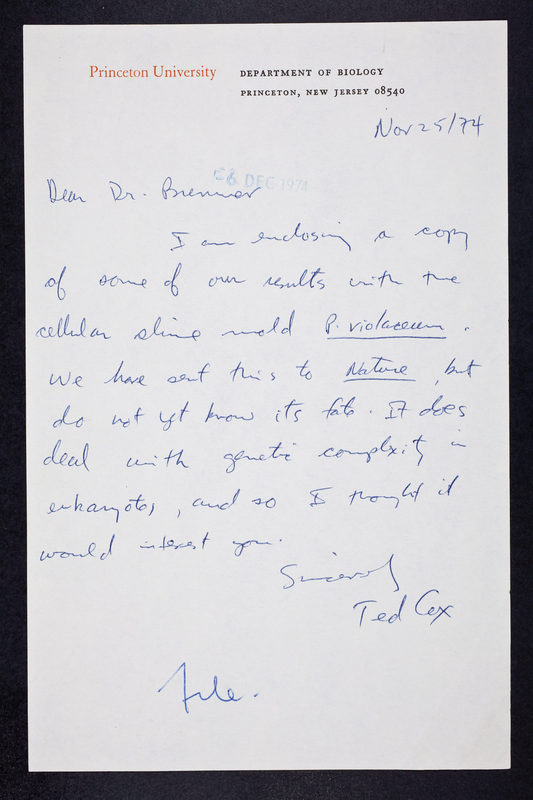 Princeton University DEPARTMENT OF BIOLOGY
PRINCETON, NEW JERSEY 08540
Nov 25/74
26 DEC 1974
Dear Dr. Brenner
I am enclosing a copy
of some of our results with the
cellular slime mold P. violaceum.
We have sent this to Nature, but
do not yet know its fate. It does
deal with genetic complexity in
eukaryotes, and so I thought it
would interest you.
Sincerely
Ted Cox
File.